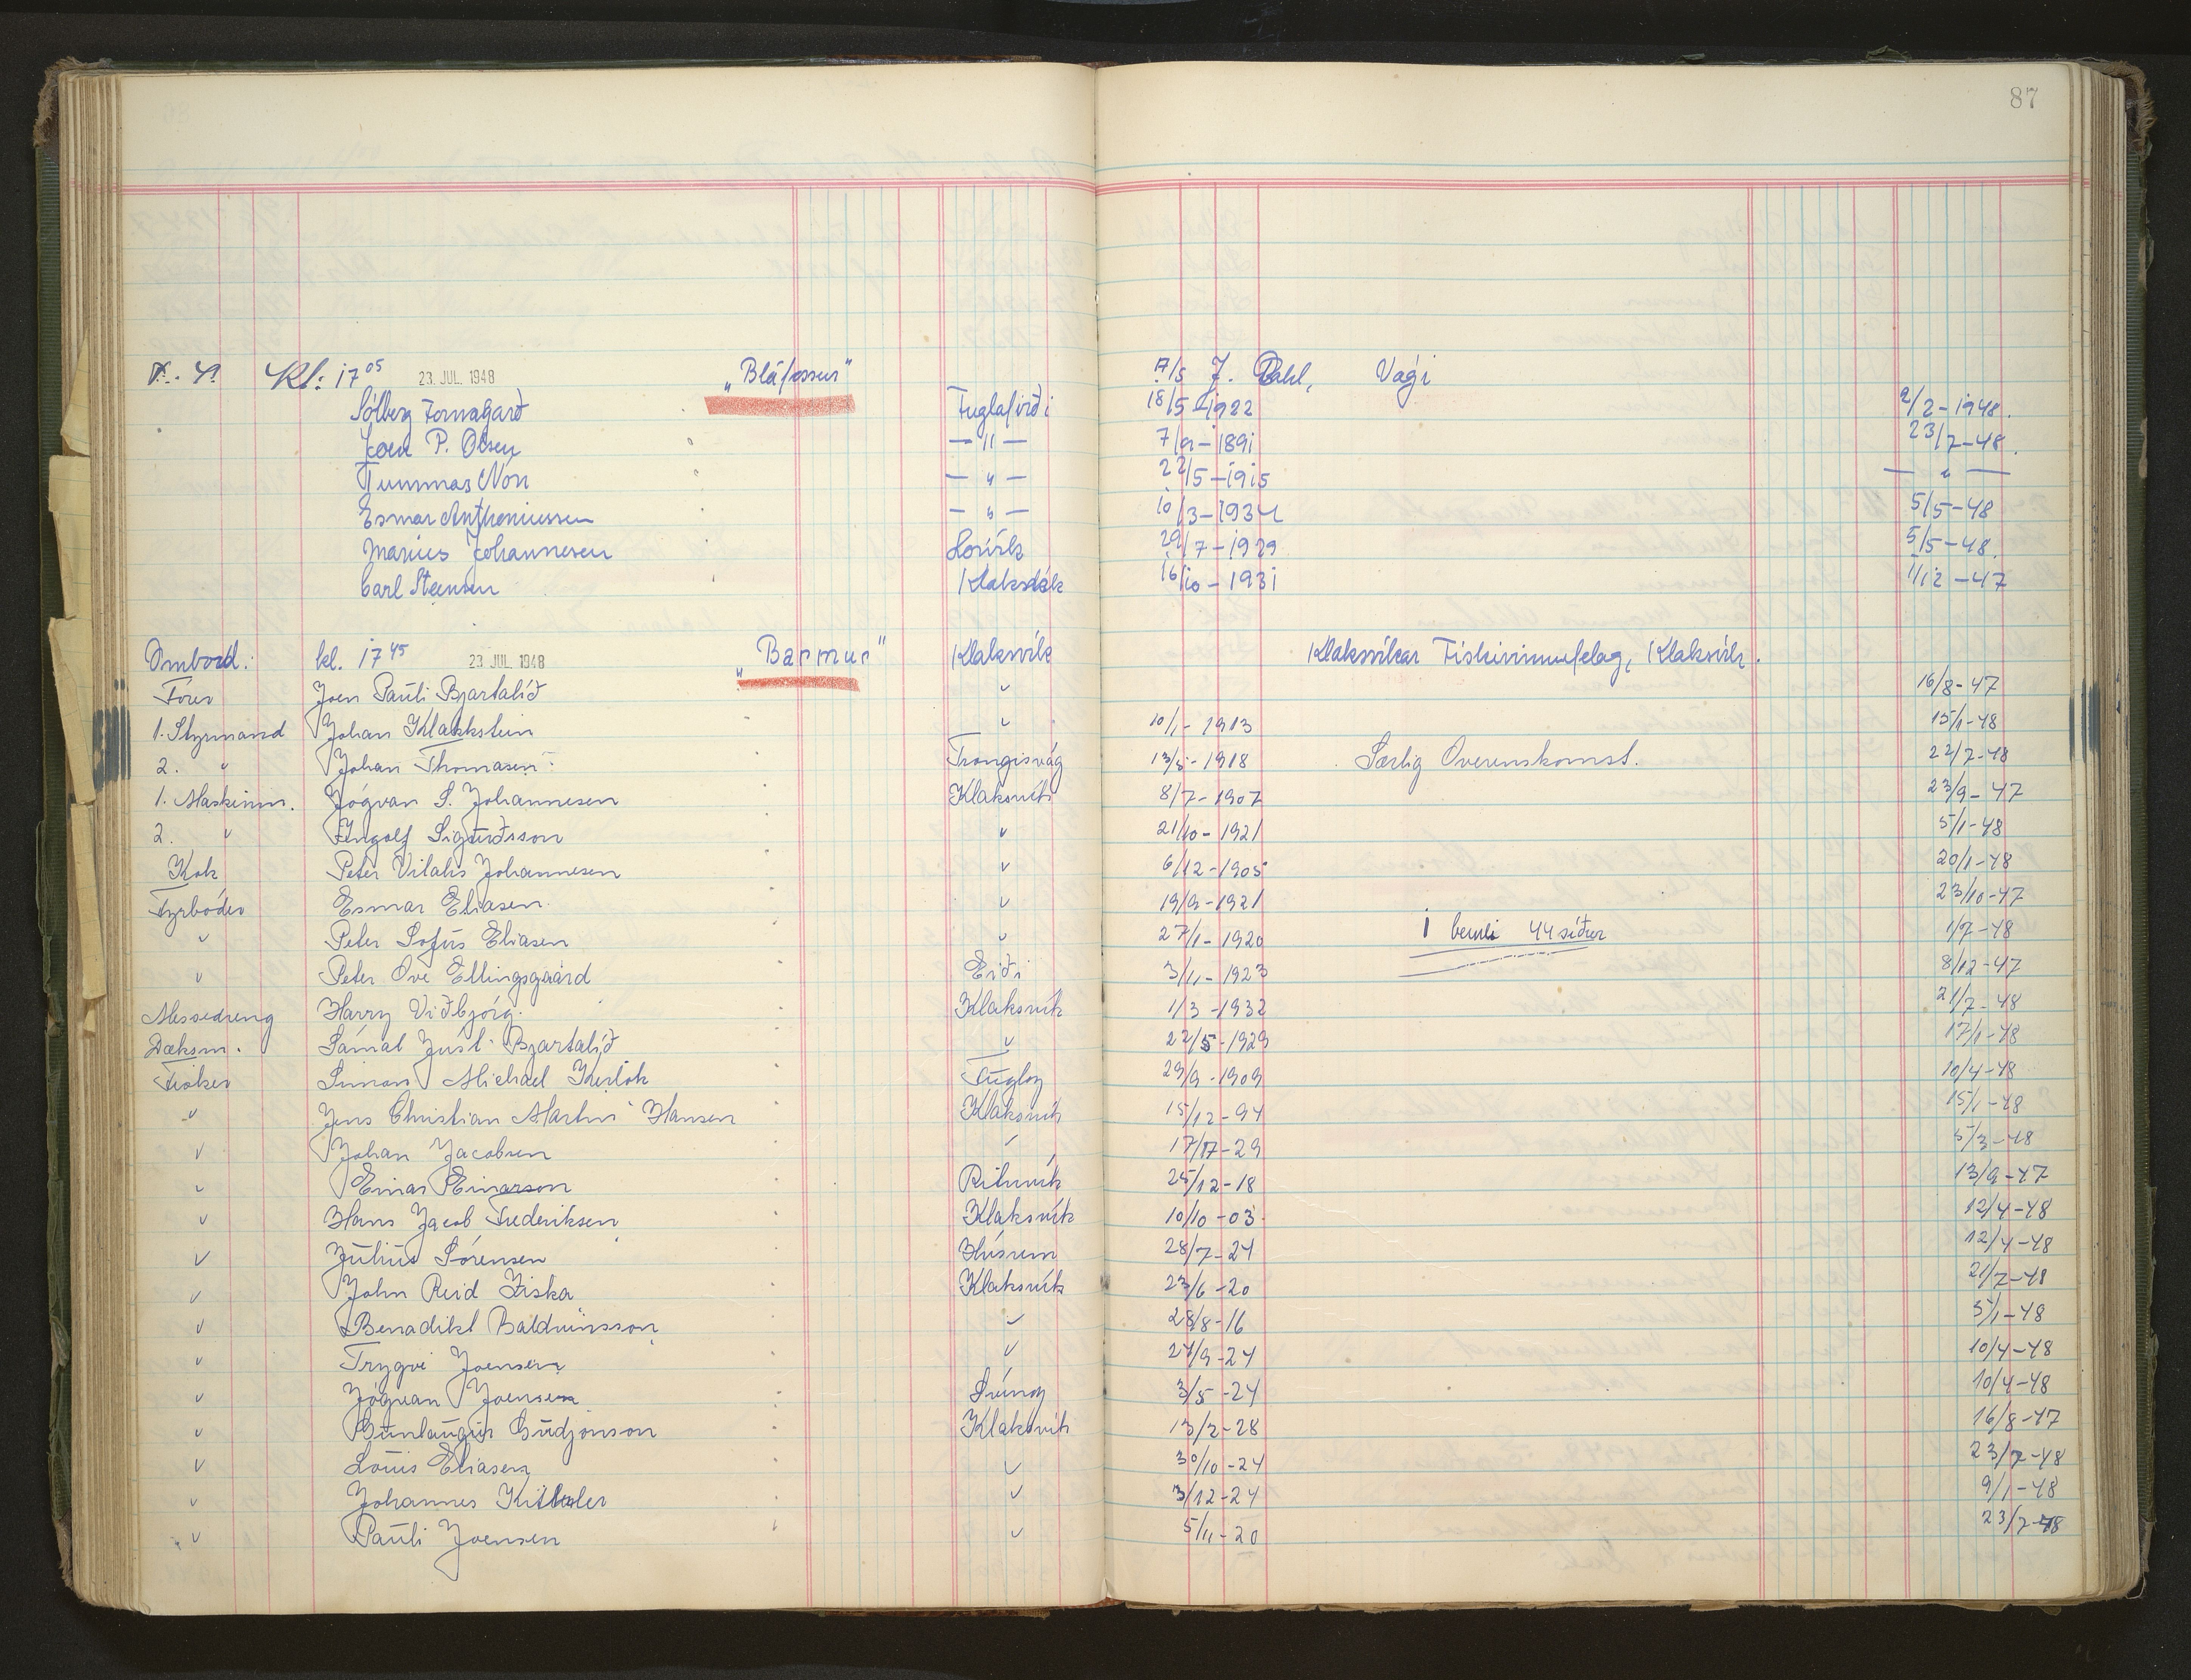 87
Kl: 17 05 23. JUL. 1948 „Bláfossur" A/S J. Dahl, Vági
Sólberg Tornagarð Fuglafirði 18/5-1922 2/2-1948.
Joen P. Olsen —"— 7/9-1891 23/7-48.
Tummas Nón —"— 22/5-1915 —"—
Esmar Anthoniussen —"— 10/3-1934 5/5-48
Marius Johannesen Lorvík 29/7-1929 5/5-48.
Carl Steensen Klaksvík 16/10-1931 1/12-47
Ombord. kl. 17 45 23 JUL 1948 „Barmur" Klaksvík Klaksvíkar Fiskivinnufelag, Klaksvík.
Förer Joen Pauli Bjartalíð " 16/8-47
1. Styrmand Johan Klakkstein " 10/1-1913 15/1-48
2. " Johan Thomasen Trongisvág 13/5-1918 Særlig Overenskomst. 22/7-48
1. Maskinm. Jógvan S. Johannesen Klaksvík 8/7-1907 23/9-47
2. " Ingolf Sigurðsson " 21/10-1921 5/1-48
Kok Peter Vitalis Johannesen " 6/12-1905 20/1-48
Fyrböder Esmar Eliasen " 19/9-1921 23/10-47
" Peter Sofus Eliasen " 27/1-1920 í 44 síður 1/7-48
" Peter Ove Ellingsgaard Eiði 3/11-1923 8/12-47
Messedreng Harry Viðbjórg. Klaksvík 1/3-1932 21/7-48
Dæksm. Sámal Just Bjartalíð " 22/5-1929 17/1-48
Fisker Simon Michael Fugloy 29/9-1909 10/4-48
" Jens Christian Martin Hansen Klaksvík 15/12-94 15/1-48
" Johan Jacobsen " 17/-29 5/3-48
" Einar Einarson Rituvík 25/12-18 13/9-47
" Hans Jacob Frederiksen Klaksvík 10/10-03 12/4-48
" Julius Sörensen Húsum 28/7-24 12/4-48
" John Reid Ziska Klaksvík 23/6-20 21/7-48
" Benadikt Balduinsson " 28/8-16 5/1-48
" Trygvi Joensen " 27/9-24 10/4-48
" Jógvan Joensen Svínoy 3/5-24 10/4-48
" Gunlaugur Gudjonson Klaksvík 13/2-28 16/8-47
" Louis Eliasen " 30/10-24 23/7-48
" Johannes " 3/12-24 9/1-48
" Pauli Joensen " 5/11-20 23/7-48